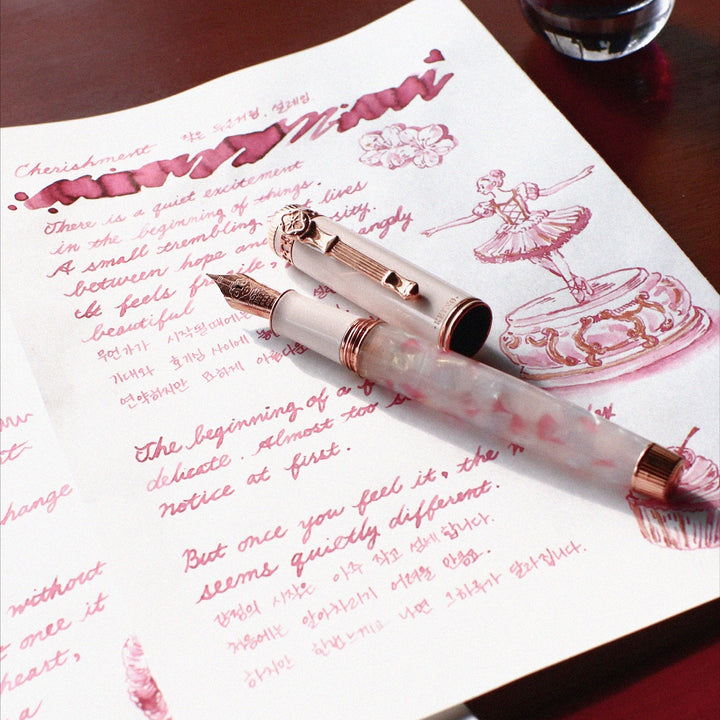 Cherishment 작은 두근거림, 설레임
There is a quiet excitement
in the beginning of things.
A small trembling that lives
between hope and
It feels fragile,
beautiful
무언가가 시작될 때에는
기대와 호기심 사이에
연약하지만 묘하게 아름다운
The beginning of a f
delicate. Almost too
notice at first.
But once you feel it, the
seems quietly different.
감정의 시작은 아주 작고 섬세합니다.
처음에는 알아차리기 어려울 만큼요.
하지만 한번 느끼고 나면 그 하루가 달라집니다.
hange
without
t once it
heart,
a